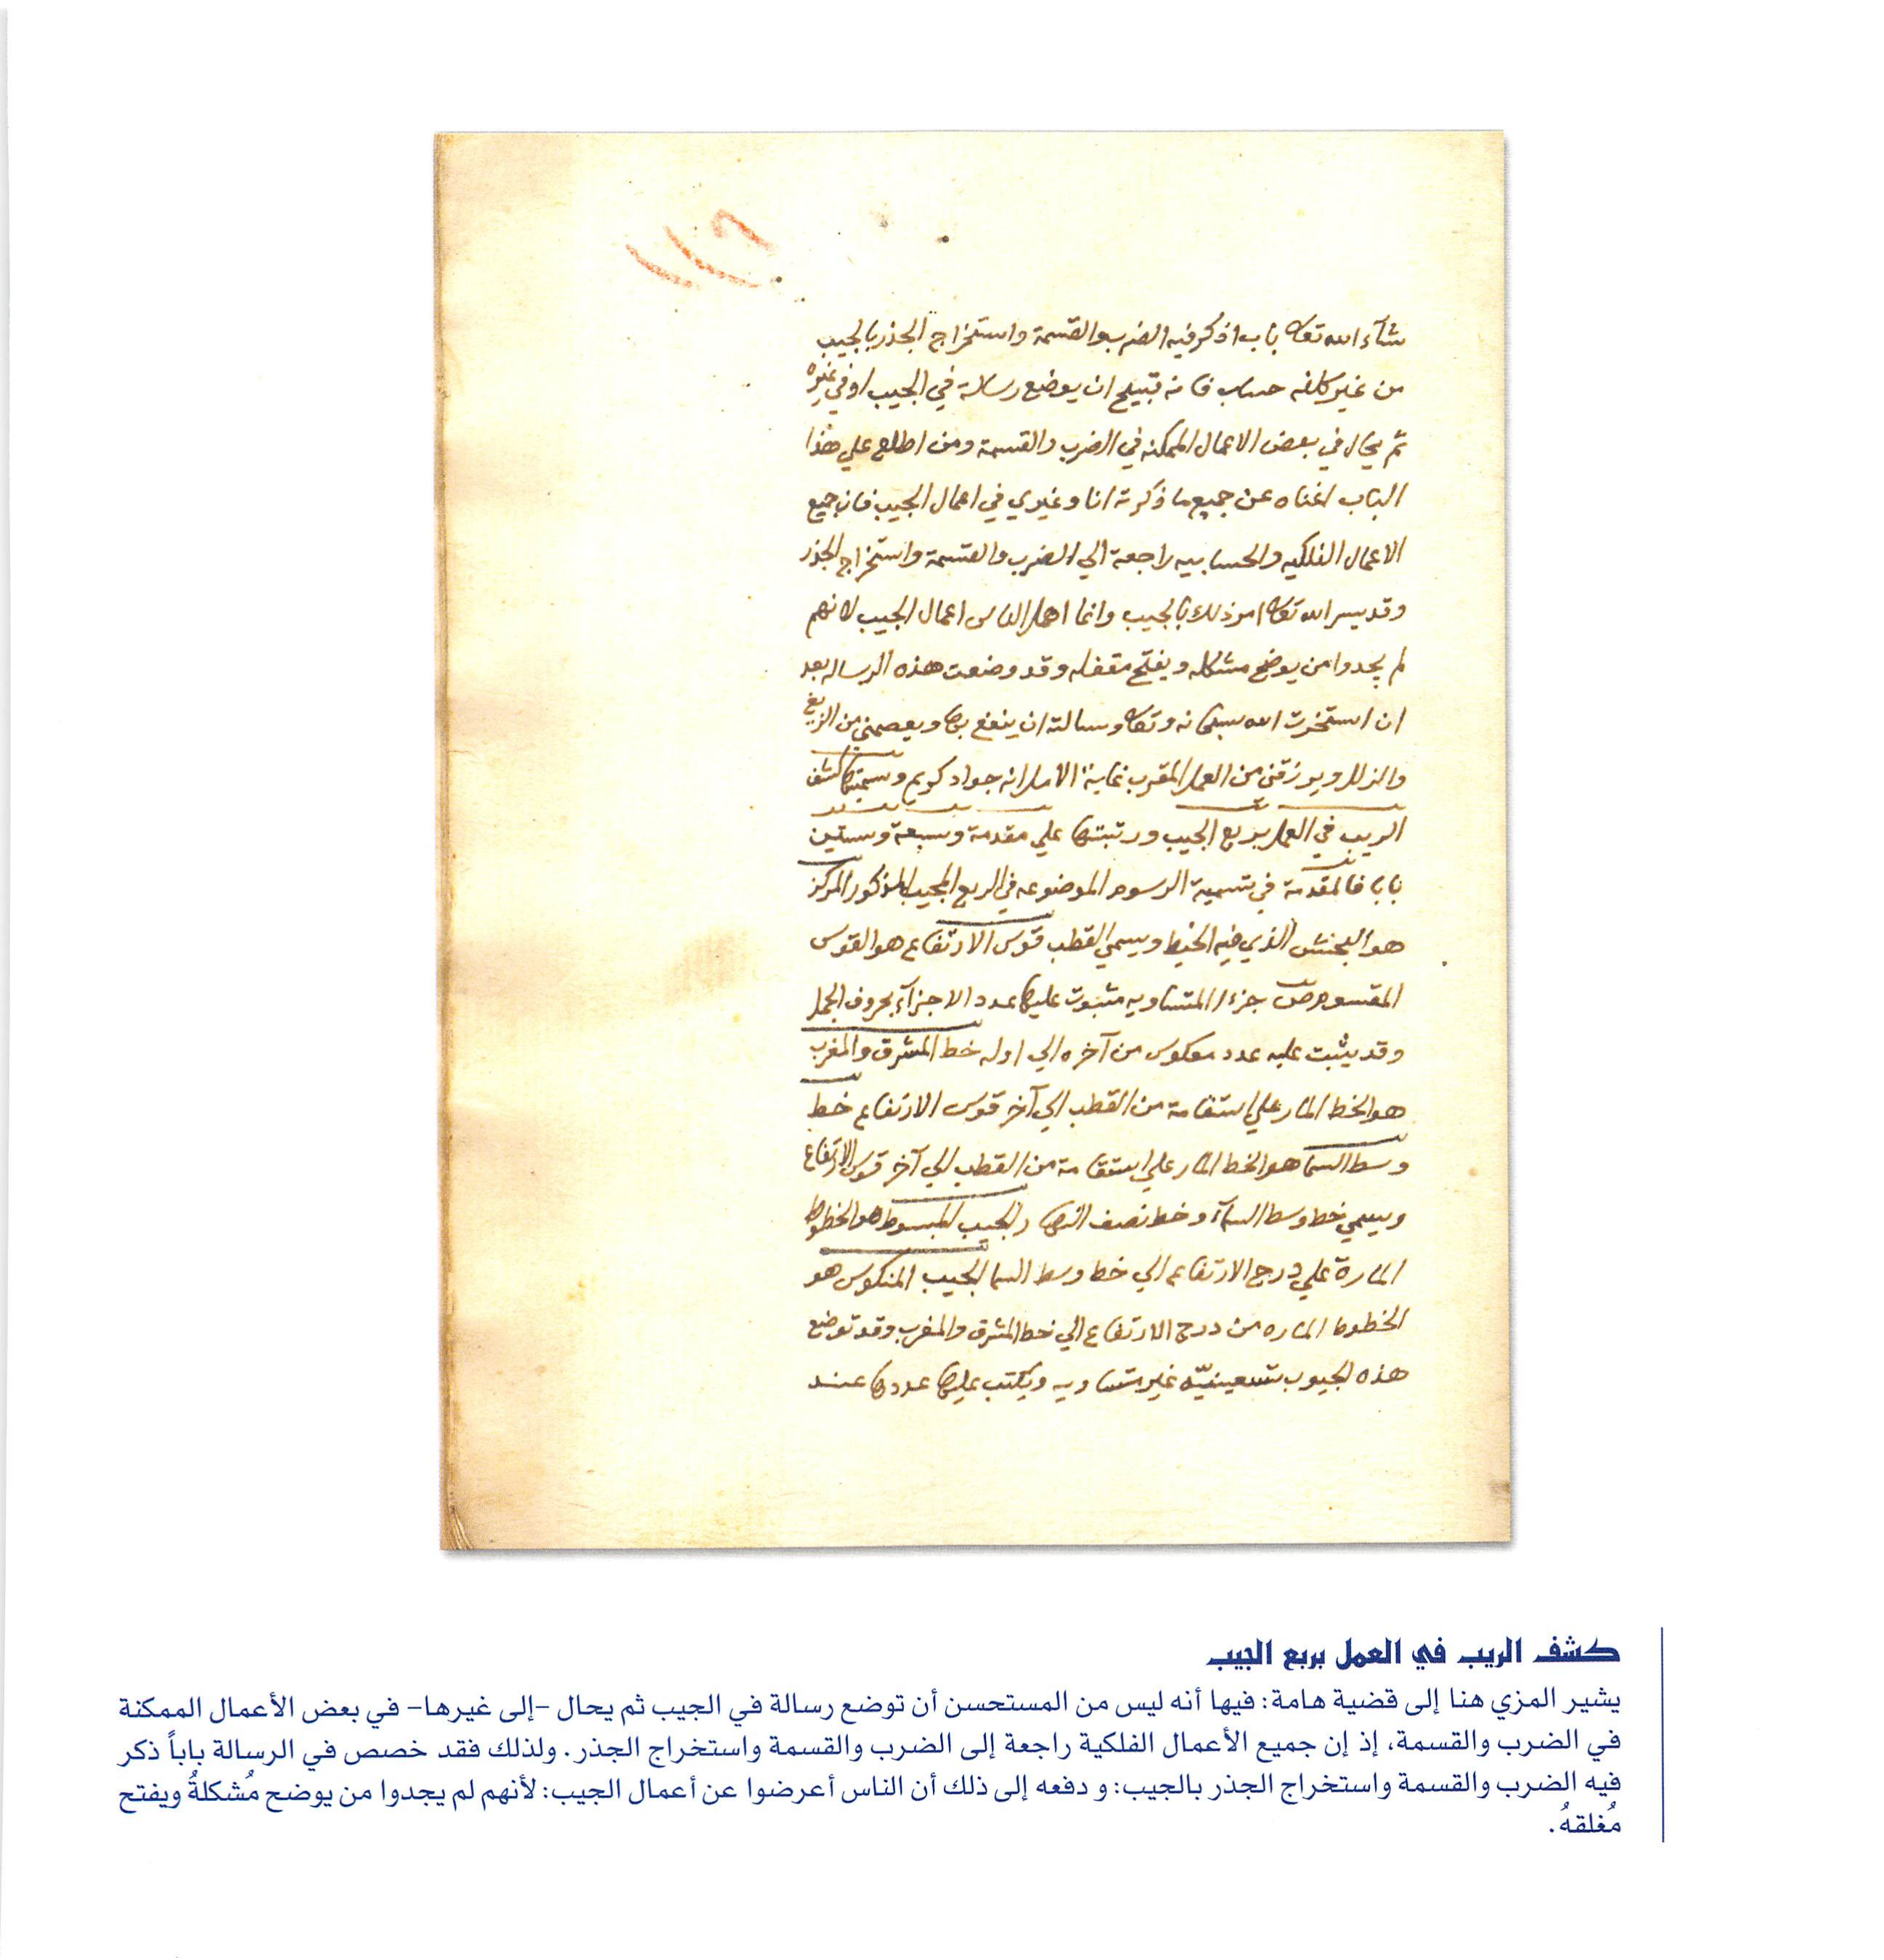 ١١٩
شآء الله تعالى باب اذكر فيه الضرب والقسمة واستخراج الجذر بالجيب
من غير كلفه حساب فانه قبيح ان يوضع رسالة في الجيب او في غيره
ثم يحال في بعض الاعمال الممكنه في الضرب والقسمة ومن اطلع علي هذا
الباب اغناه عن جميع ما ذكرته انا وغيري في اعمال الجيب فان جميع
الاعمال الفلكيه والحسابيه راجعة الي الضرب والقسمة واستخراج الجذر
وقد يسر الله تعالى امر ذلك بالجيب وانما اهمل الناس اعمال الجيب لانهم
لم يجدوا من يوضح مشكله ويفتح مقفله وقد وضعت هذه الرساله بعد
ان استخرت الله سبحانه وتعالى وسالته ان ينفع بها ويعصمني من الزيغ
والزلل ويرزقني من العمل المقرب غاية الامل انه جواد كريم وسميتها كشف
الريب في العمل بربع الجيب ورتبتها علي مقدمة وسبعة وستين
بابا فالمقدمة في تسمية الرسوم الموضوعه في الربع المجيب المذكور المركز
هو البخش الذي فيه الخيط ويسمي القطب قوس الارتفاع هو القوس
المقسوم ص جزءا المتساويه مثبوت عليها عدد الاجزآء بحروف الجمل
وقد يثبت عليه عدد معكوس من آخره الي اوله خط المشرق والمغرب
هو الخط المار علي استقامة من القطب الي آخر قوس الارتفاع خط
وسط السما هو الخط المار علي استقامة من القطب الي آخر قوس الارتفاع
ويسمي خط وسط السمآء وخط نصف النهار الجيب المبسوط هو الخطوط
المارة علي درج الارتفاع الي خط وسط السما الجيب المنكوس هو
الخطوط الماره من درج الارتفاع الي خط المشرق والمغرب وقد توضع
هذه الجيوب تسعينيّه غير متساويه ويكتب عليها عددها عند
كشف الريب في العمل بربع الجيب
يشير المزي هنا إلى قضية هامة: فيها أنه ليس من المستحسن أن توضع رسالة في الجيب ثم يحال -إلى غيرها- في بعض الأعمال الممكنة
في الضرب والقسمة، إذ إن جميع الأعمال الفلكية راجعة إلى الضرب والقسمة واستخراج الجذر. ولذلك فقد خصص في الرسالة باباً ذكر
فيه الضرب والقسمة واستخراج الجذر بالجيب: و دفعه إلى ذلك أن الناس أعرضوا عن أعمال الجيب: لأنهم لم يجدوا من يوضح مُشكلةُ ويفتح
مُغلقهُ.